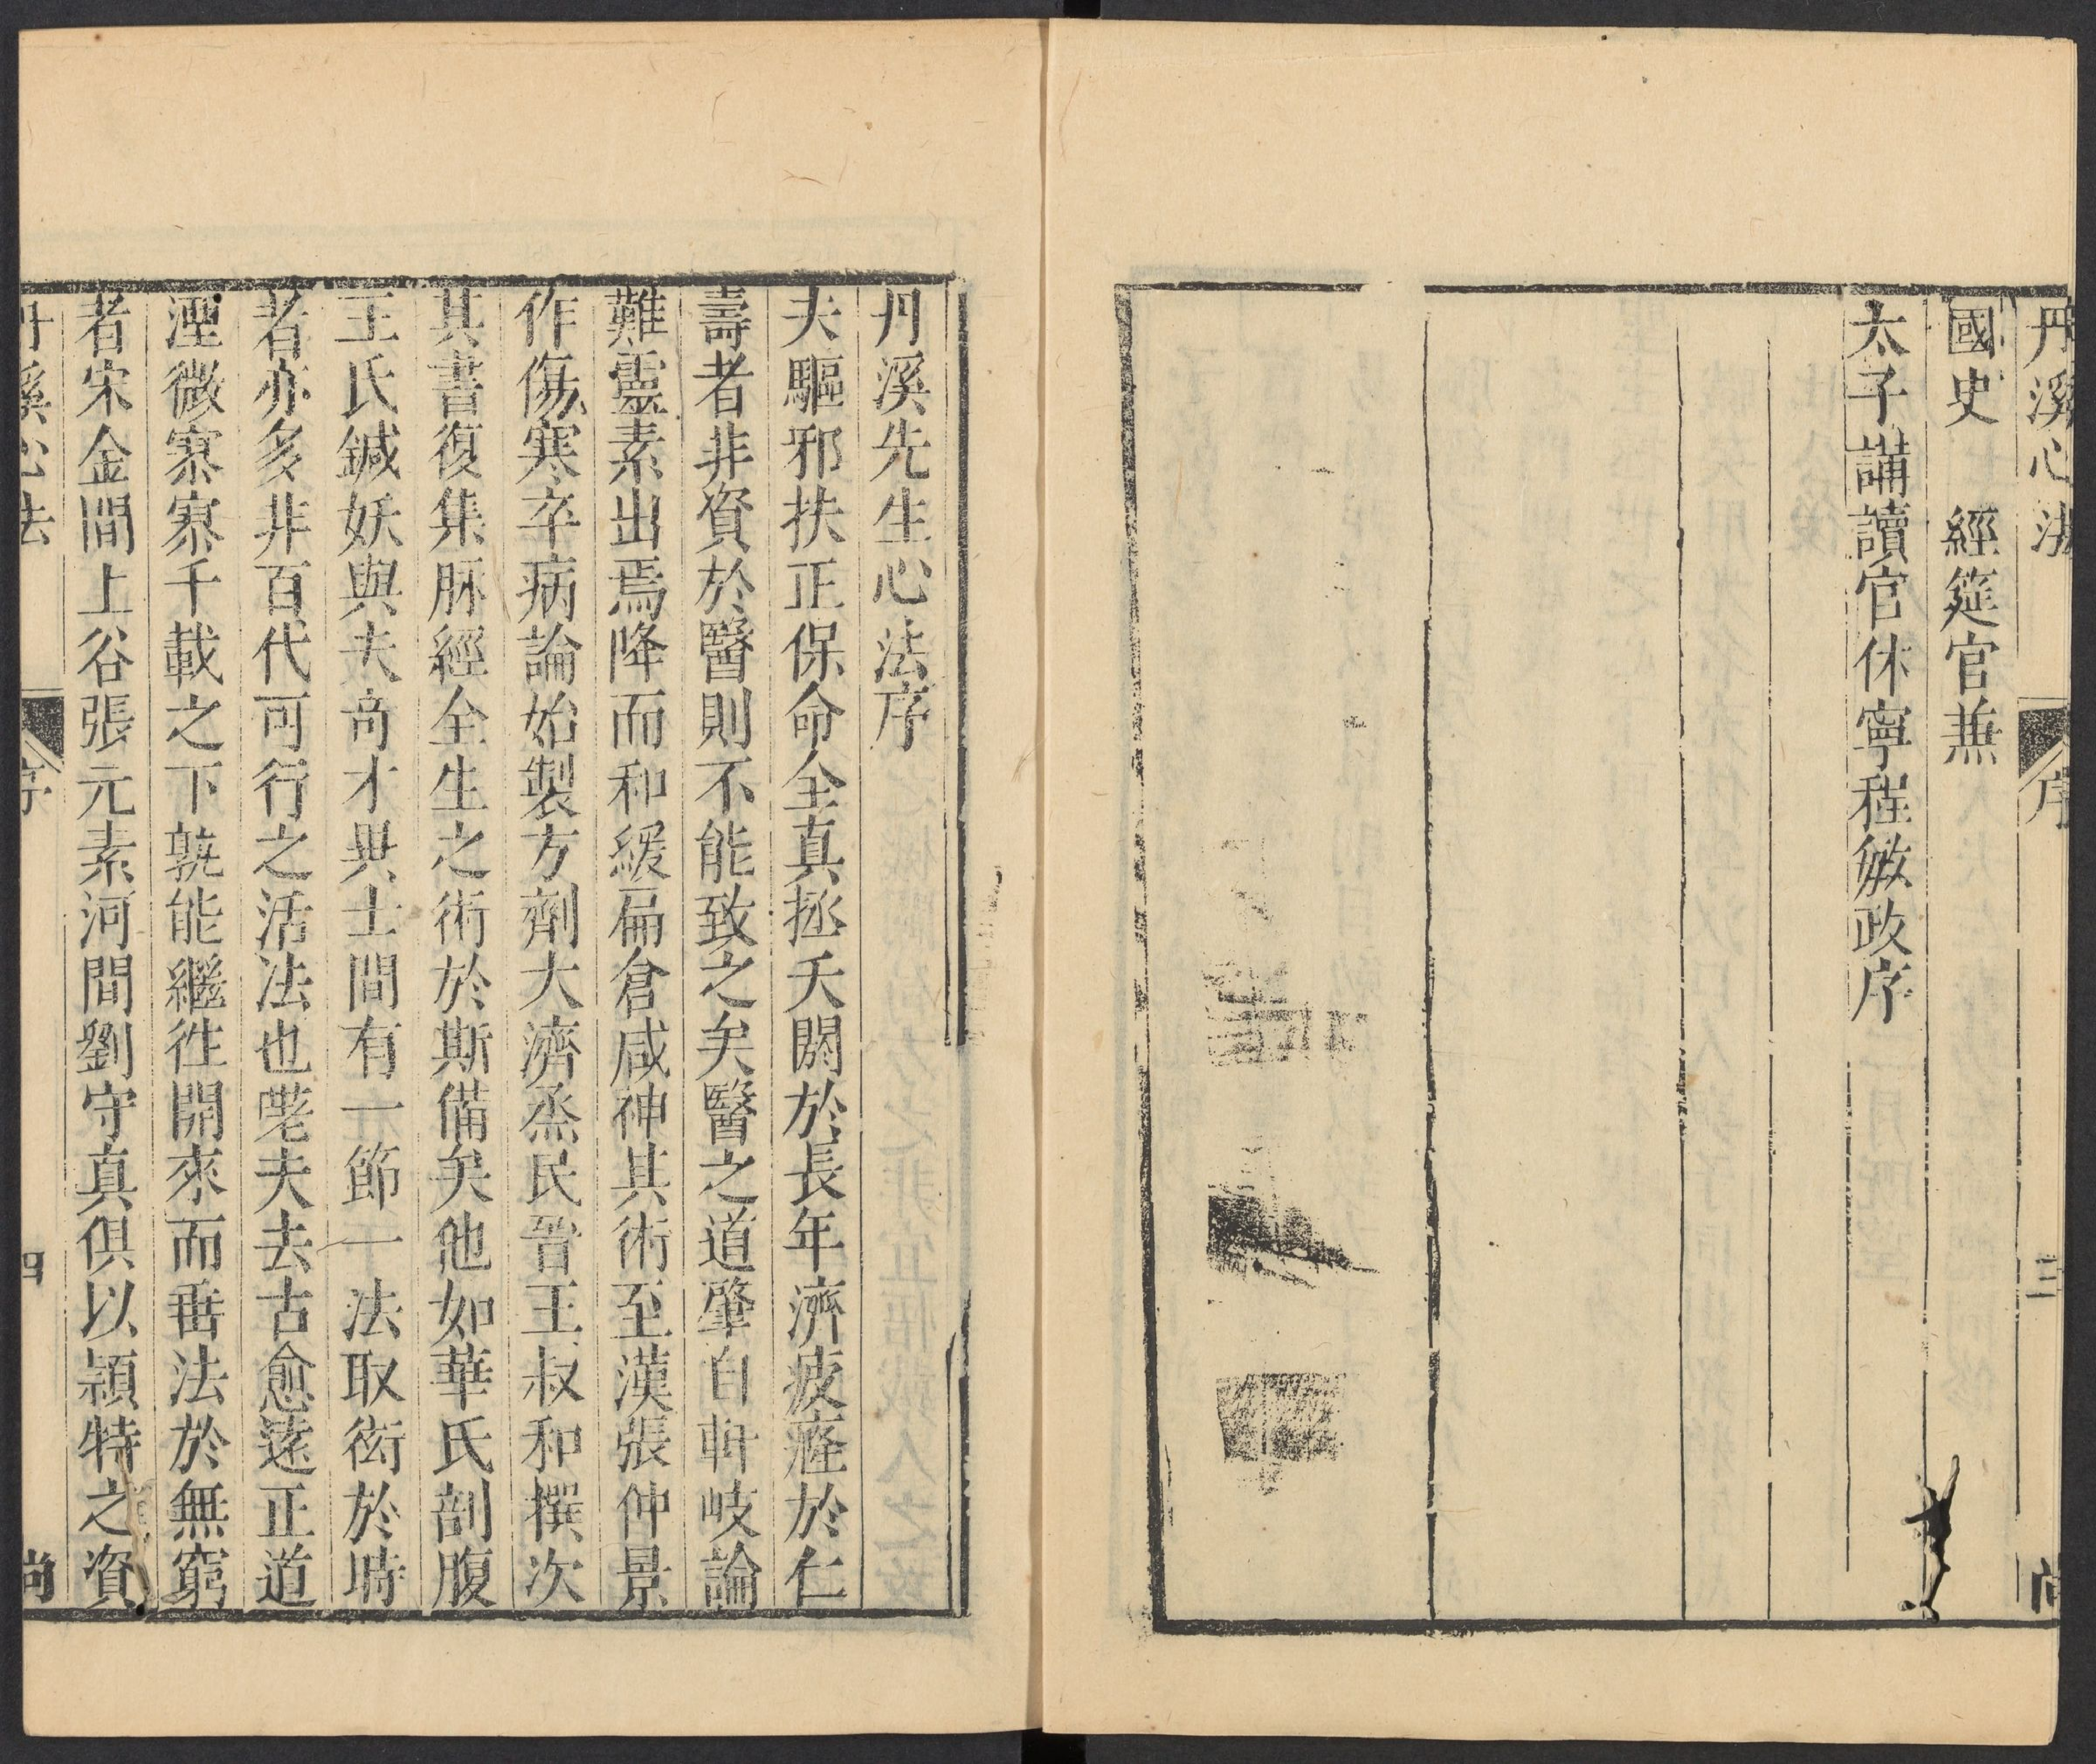 丹溪心法 序 三 尚
國史 經筵官兼
太子講讀官休寧程敏政序
丹溪先生心法序
夫驅邪扶正保命全真拯夭閼於長年濟疲癃於仁
壽者非資於醫則不能致之矣醫之道肇自軒岐論
難靈素出焉降而和緩扁倉咸神其術至漢張仲景
作傷寒卒病論始製方劑大濟烝民晉王叔和撰次
其書復集脈經全生之術於斯備矣他如華氏剖腹
王氏鍼妖與夫奇才異士間有一節一法取衒於時
者亦多非百代可行之活法也嗟夫去古愈遠正道
湮微寥寥千載之下孰能繼徃開來而垂法於無窮
者宋金間上谷張元素河間劉守真俱以穎特之資
丹溪心法 序 四 尚